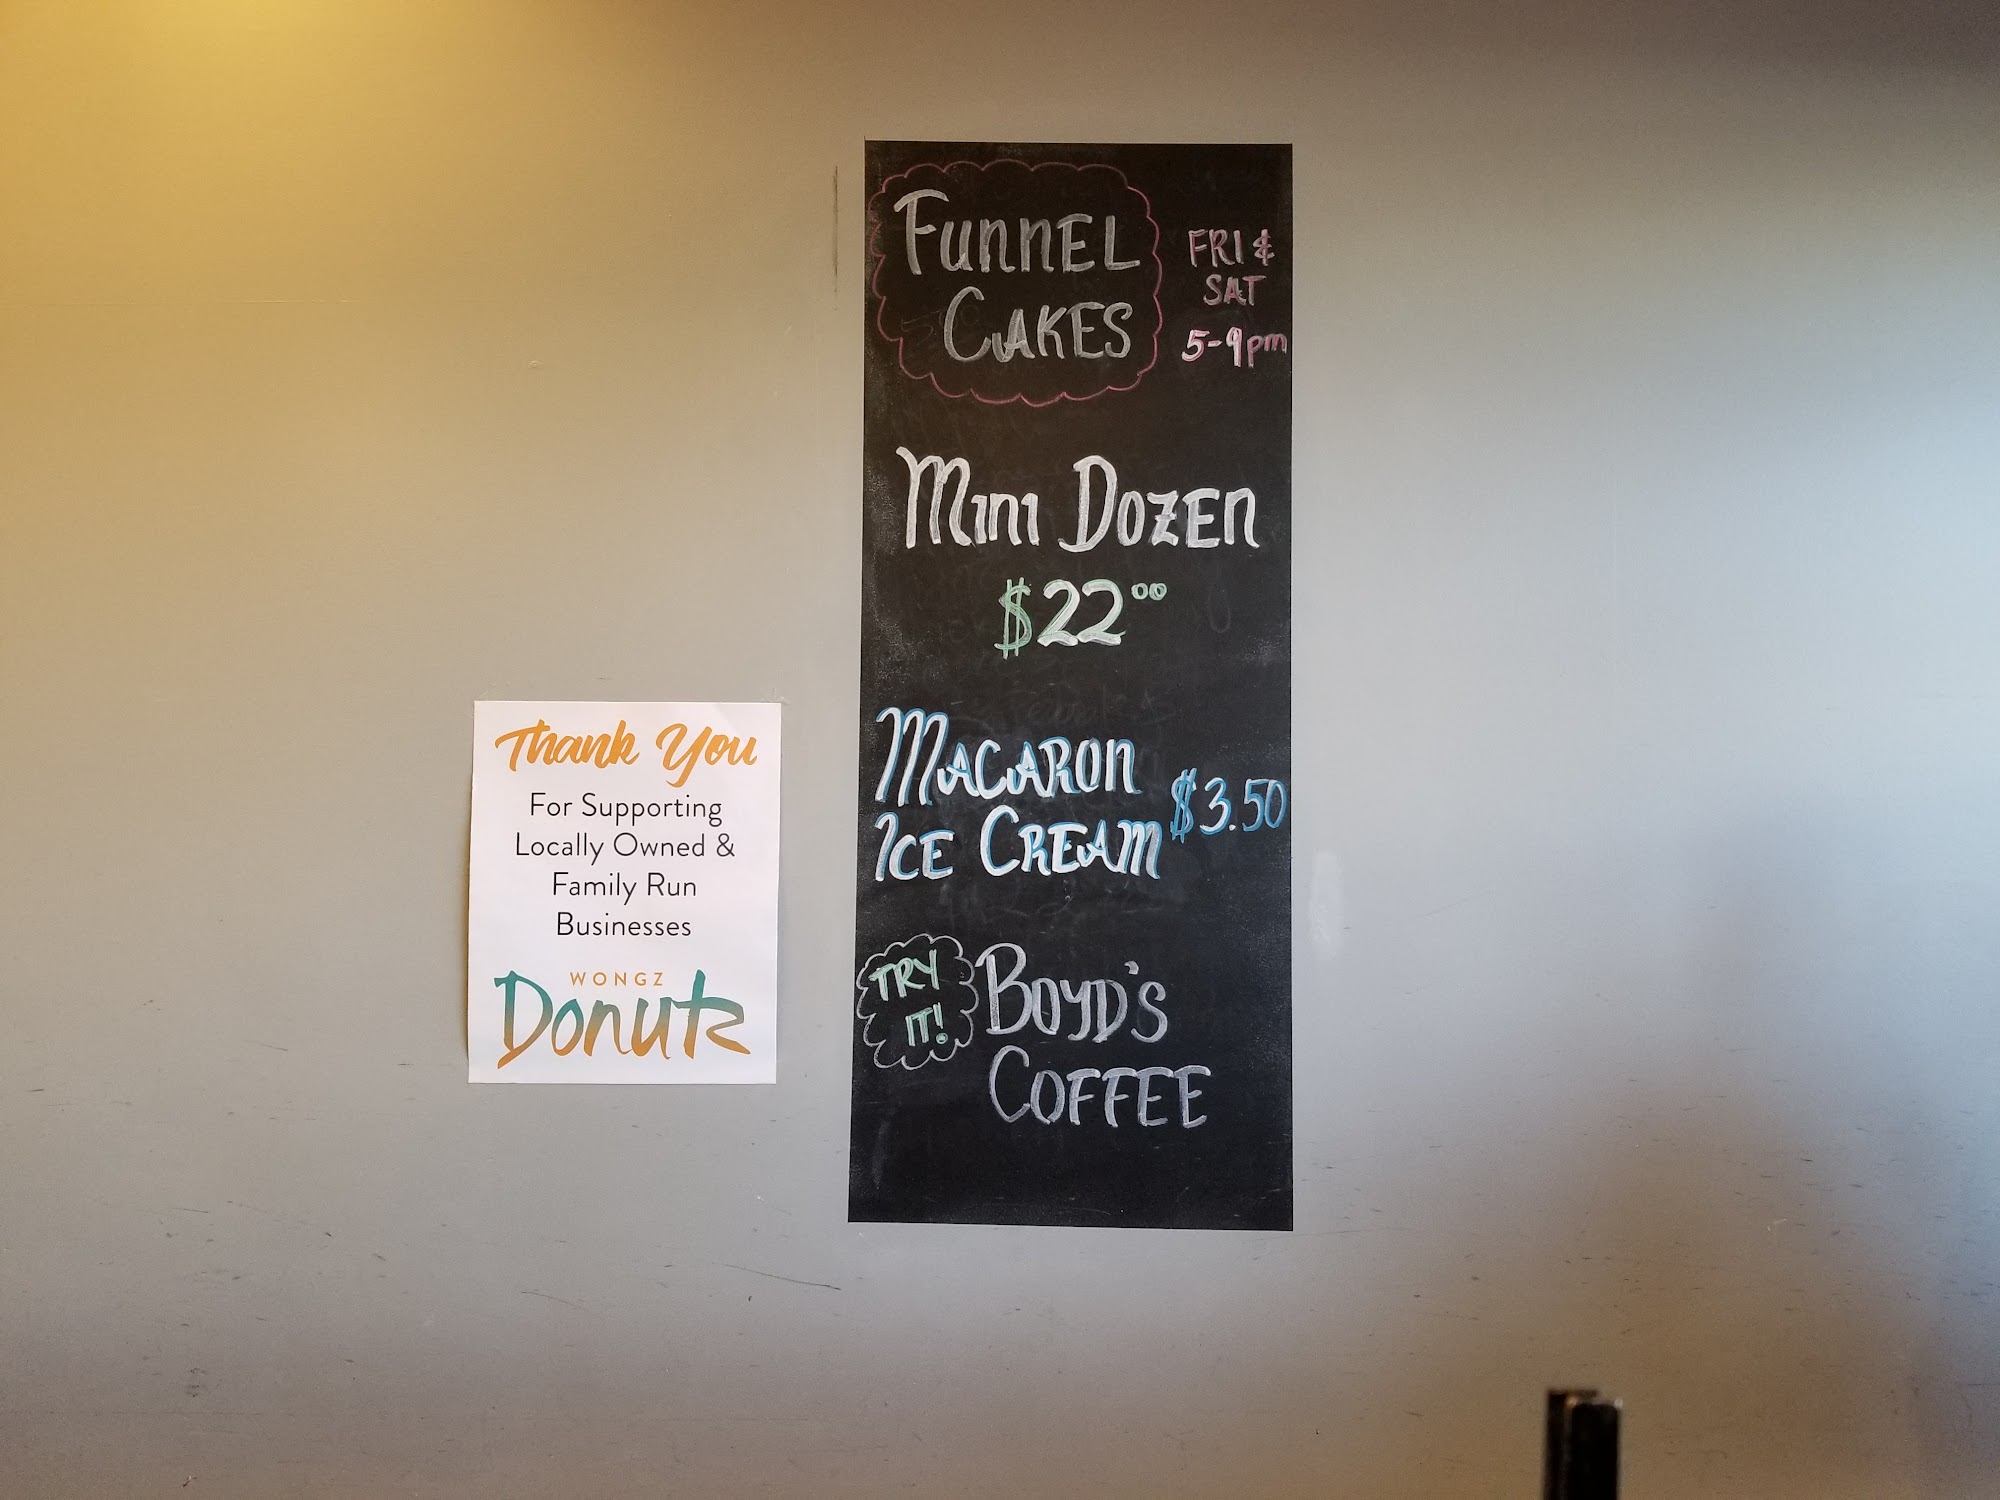 Thank You
For Supporting
Locally Owned &
Family Run
Businesses
WONGZ
Donutz
FUNNEL
CAKES
FRI &
SAT
5-9pm
MINI DOZEN
$22.00
MACARON
ICE CREAM
$3.50
TRY
IT!
BOYD'S
COFFEE